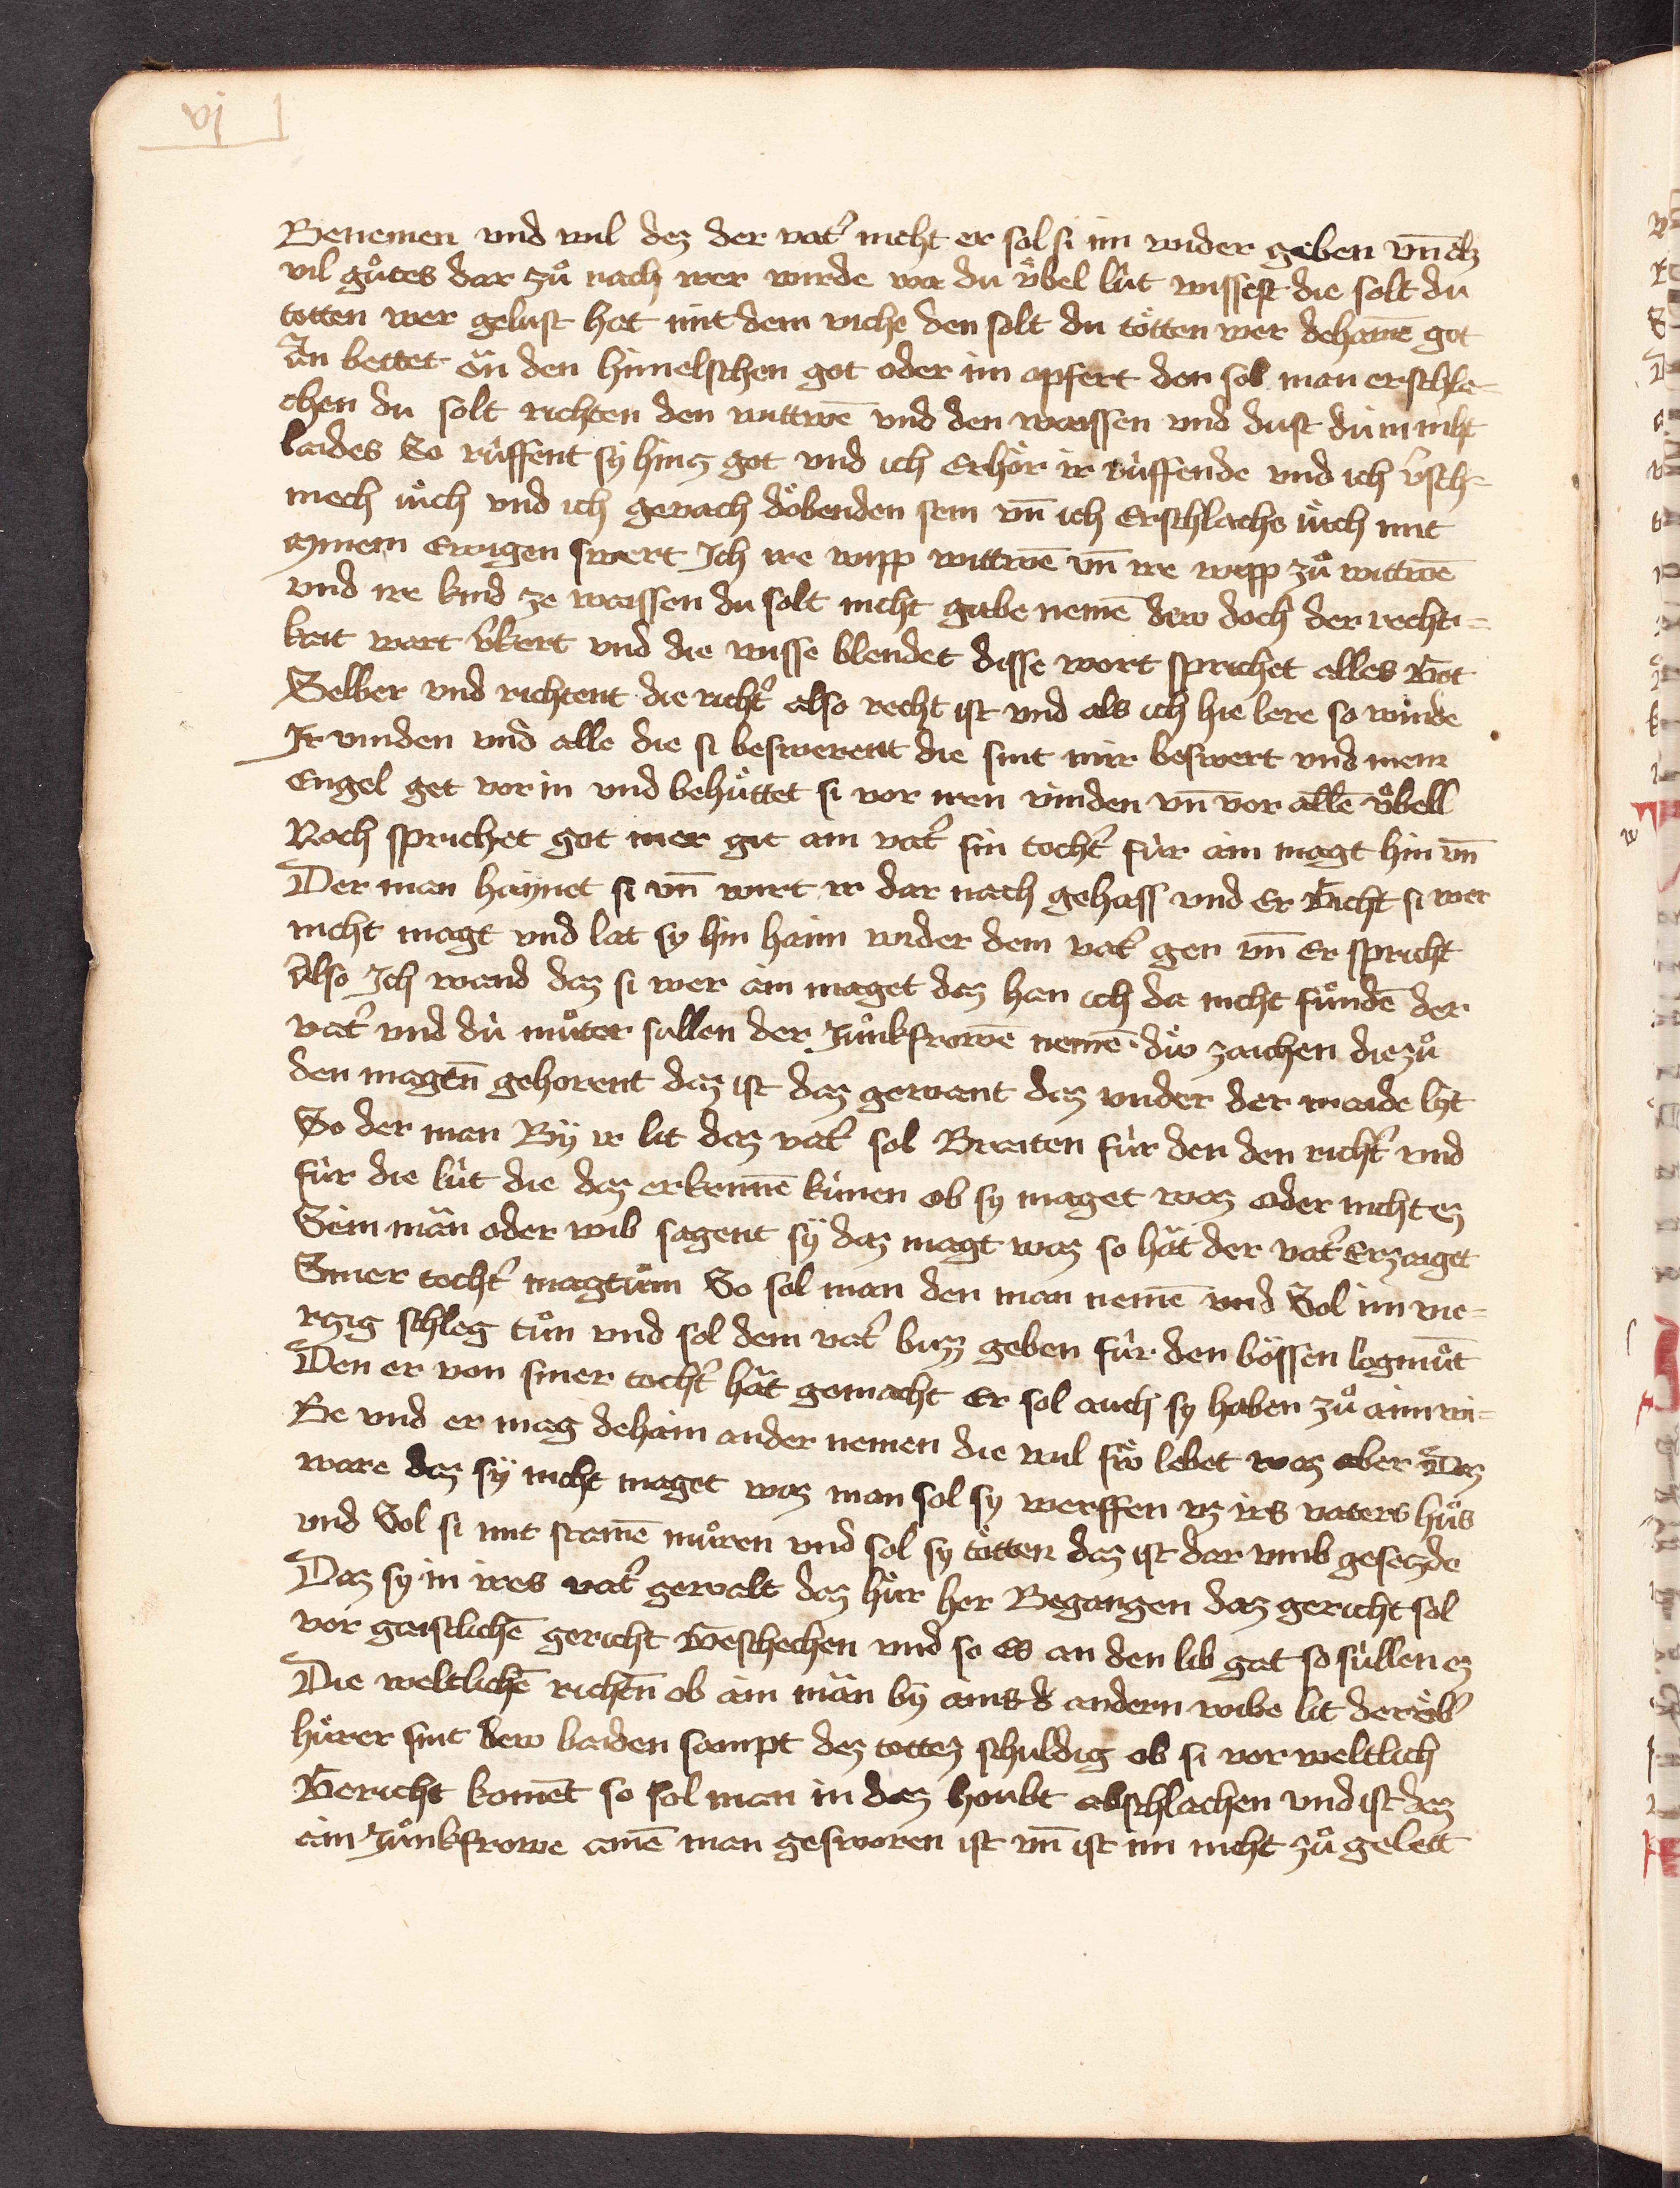 Benemen vnd wil dez der vatˀ nicht er sol si im wider geben vn̄
vil gůtes dar zů nach irer wirde wa du v̈bel lût wissest die solt du
totten wer gelust hat mit dem viche den solt du tôtten wer dehainē got
An bettet ân den himelschen got oder im opfert den sol man erschla-
chen du solt richten den wittwē vnd den waissen vnd dust du in niht
laides So rûffent sy hinz got vnd ich Erhôr ir rûffende vnd ich v̂sch-
mech iûch vnd ich gerach dôbenden sem vn̄ ich Erschlache iûch mit
minem Ewigen swert Ich ire wipp wittwē vn̄ ire wipp zů wittwē
vnd ire kind ze waissen du solt nicht gabe nemē dew doch der rechti-
kait wart v̂kert vnd die wisse blendet disse wort sprichet alles Got
Selber vnd richtent die richtˀ also recht ist vnd als ich hie lere so wûnde
Ir vinden vnd alle die si beswerent die sint mir beswert vnd mein
Engel get vor in vnd behûttet si vor iren vinden vn̄ vor allē v̈bell
Noch sprichet got mer git ain vatˀ sin tochtˀ fûr ain magt hin vn̄
Der man haÿnet si vn̄ wirt ir dar nach gehass vnd Er Gicht si wer
nicht magt vnd lat sy hin haim wider dem vatˀ gen vn̄ Er spricht
Also Ich wand daz si wer ain maget dez han ich da nicht fûndē der
vatˀ vnd dû mûter sullen der Jûnkfrowē nemē dûv zaichen die zů
den magtn̄ gehorent daz ist daz gewant daz vnder der maide lÿt
So der man Bÿ ir lit daz vatˀ sol Braiten fûr den den richtˀ vnd
fûr die lût die daz erkennē kûnen ob sy maget waz oder nicht ez
Seim mân oder wib sagent sÿ daz magt waz so hât der vatˀ Erzaiget
Siner tochtˀ magtûm So sol man den man nemē vnd Sol im vie-
rzig schleg tůn vnd sol dem vatˀ buzz geben fûr den bôssen logmût
Den er von siner tochtˀ hât gemacht Er sol auch sy haben zů aim wi-
Be vnd er mag dehain ander nemen die wil sw̃ lebet waz aber Daz
ware daz sÿ nicht maget waz man sol sy werffen vz irs vaters hûs
vnd Sol si mit stainē mûren vnd sol sy tôtten daz ist dar vmb gesezde
Daz sy in ires vatˀ gewalt daz hûr her Begangen daz gericht sol
vor gaistlichē gericht Geschechen vnd so Es an den lib gat so sûllen ez
Die weltlichē richtn̄ ob ain mân bÿ ains andern wibe lit der
hûrer sint dew baiden sampt dez tottez schuldig ob si vor weltlich
Gericht komēt so sol man in daz houbt abschlachen vnd ist daz
ain Jûnkfrowe ainē man gesworen ist vn̄ ist im nicht zů gelett